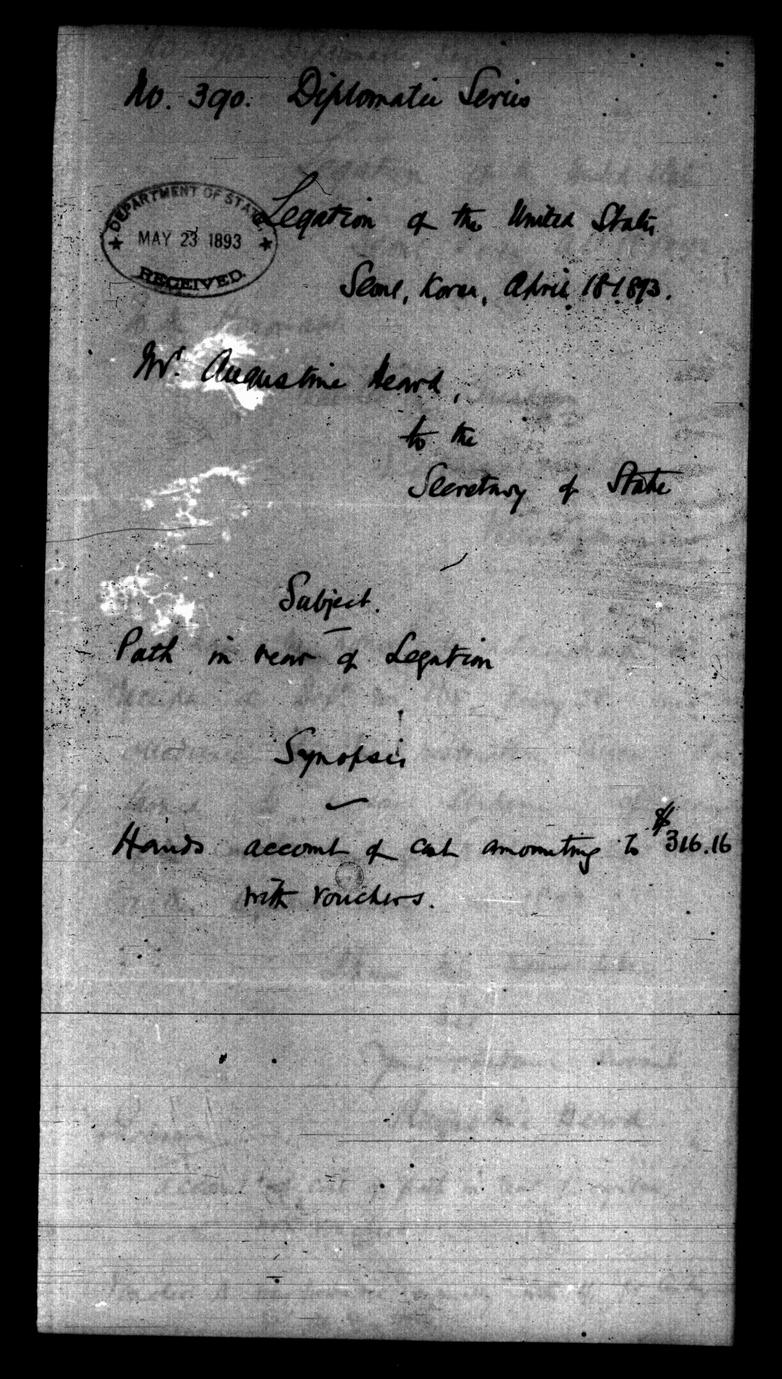 No. 390. Diplomatic Series
DEPARTMENT OF STATE
MAY 23 1893
RECEIVED.
Legation of the United States
Seoul, Korea, April 18 1893.
Mr. Augustine Heard,
to the
Secretary of State
Subject.
Path in rear of Legation
Synopsis
Hands account of cost amounting to $316.16
with vouchers.